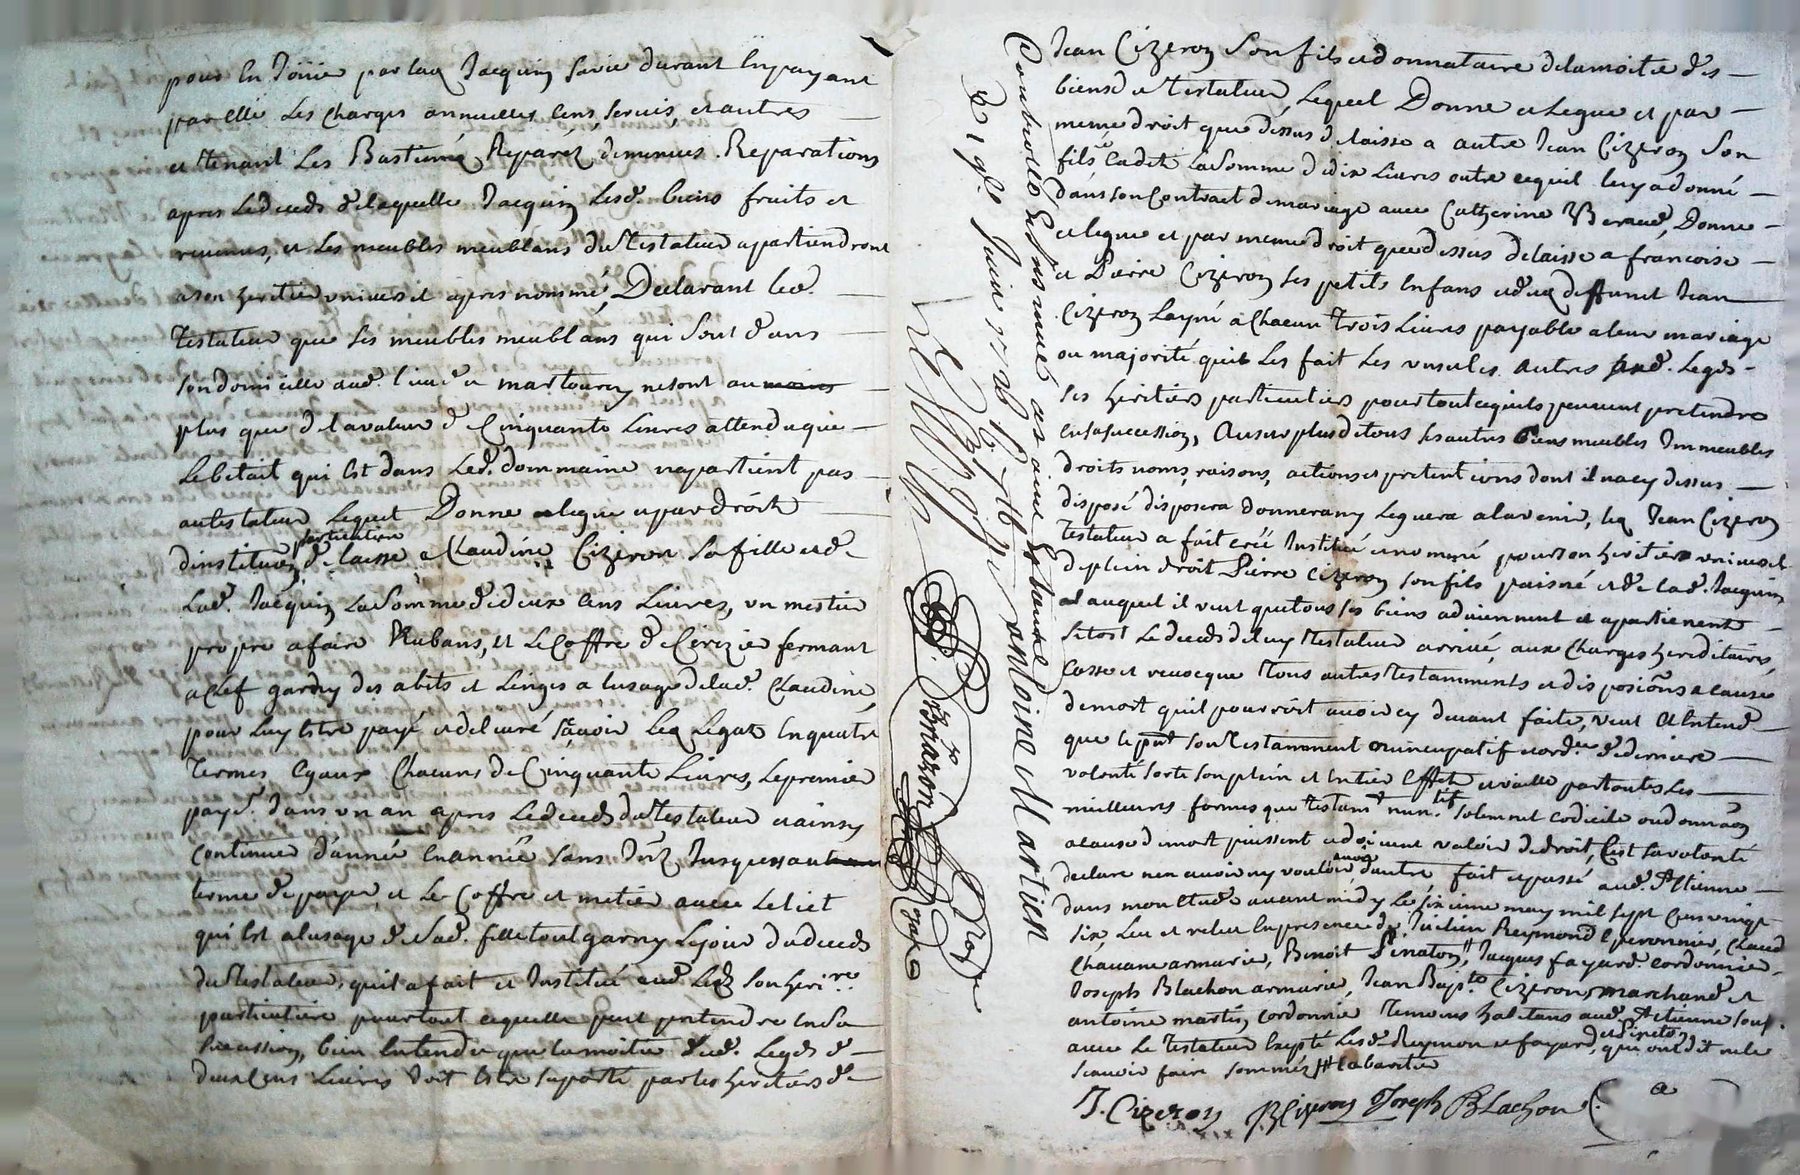 pour en Joüir par lad Jacquin sa vie durant En payant
par elle Les charges annuelles Cens, servis, et autres
et tenant Les Bastimẽ Reparéz de menues Reparations
apres Le deceds de laquelle Jacquin Lesd. biens fruits et
revenus, et Les meubles meublans du Testateur apartiendront
a son heritier universel apres nommé, Declarant led.
Testateur que ses meubles meublans qui sont dans
son domicille aud. lieu de martourey ne sont au moins
plus que de la valeur de Cinquante Livres attendu que
Le betail qui Est dans Led. dommaine n'apartient pas
au testateur, Lequel Donne et legue et par droit
particuliere
d'institution delaisse a Claudine Cizeron sa fille et de
Lad. Jacquin La Somme de deux Cens Livres, un mestier
propre a faire Rubans, et Le Coffre de Cerizier fermant
a clef garny des abits et Linges a lusage de lad. Claudine
pour Luy Estre payé et delivré sçavoir Led Legat En quatre
Termes Egaux Chacuns de Cinquante Livres, Le premier
payé. dans un an apres Le deceds du Testateur et ainsy
Continuer d'année En année sans Jusques au
terme de payer, et Le Coffre et metier avec Le liet
qui Est a lusage de Lad. fille tout garny Le jour du deceds
du Testateur, qu'il a fait et Institué aud. Son heri.re
particuliere pour tout ce quelle peut pretendre En sa
succession, bien Entendu que La moitié dud. Legs de
deux Cens Livres doit Estre suporté par les heritiers de
Controllé Et Insinué as aint Etienne
Le
antoine Martien
Bonazon
Jean Cizeron Son fils et donnataire de la moitié des
biens de testateur, Lequel Donne et Legue et par
meme droit que dessus delaisse a autre Jean Cizeron Son
fils Cadet La Somme de dix Livres outre ce quil luy a donné
dans son Contract de mariage avec Catherine Beraud, Donne
et legue et par meme droit que dessus delaisse a francoise
et Pierre Cizeron ses petits Enfans et dud deffunct Jean
Cizeron Layné a Chacun Trois Livres payable a leur mariage
ou majorité quil Les fait Les uns et les autres aud. Legs
ses heritiers particuliers pour tout ce quils peuvent pretendre
en sa succession, Au surplus de tous ses autres biens meubles Immeubles
droits noms, raisons, actions et pretentions dont il n'a cy dessus
disposé disposera donnera ny Leguera a l'avenir, led Jean Cizeron
Testateur a fait créé Institué et nommé pour son heritier universel
de plein droit Pierre Cizeron son fils puisné et de lad. Jacquin
auquel il veut que tous ses biens adviennent et apartienent
sitost Le deceds deluy Testateur arrivé, aux Charges hereditaires,
Casse et revocque Tous autres Testamments et disposiõns a cause
de mort quil pourroit avoir cy devant faite, veut et Entend
que le pnt son Testamment nuncupatif et ord.re de derniere
volonté sorte son plein et Entier Effect et vaille par toutes Les
meilleures formes que Testamt nun.tif solemnel codicile ou donnaõn
a cause de mort puissent et doivent valoir de droit, C'est sa volonté
avoir
declare n'en avoir ny vouloir d'autre fait et passé aud. St Etienne
dans mon Etude avant midy Le sixieme may mil sept Cens vingt
six, Leu et releu En presence de Julien Reymond Eperonnier, Claud
Chavane armurier, Benoit Pinaton, Jacques fayard. cordonnier
Joseph Blachon armurier, Jean Bapt.te Cizeron marchand et
antoine martin cordonnier Temoins habitans aud. St Etienne souss.
et Pineton
avec Le testateur Exepté Lesd. Reymon et fayard, qui ont dit ne le
scavoir faire sommés
J. Cizeron B Cizeron Joseph BLachon